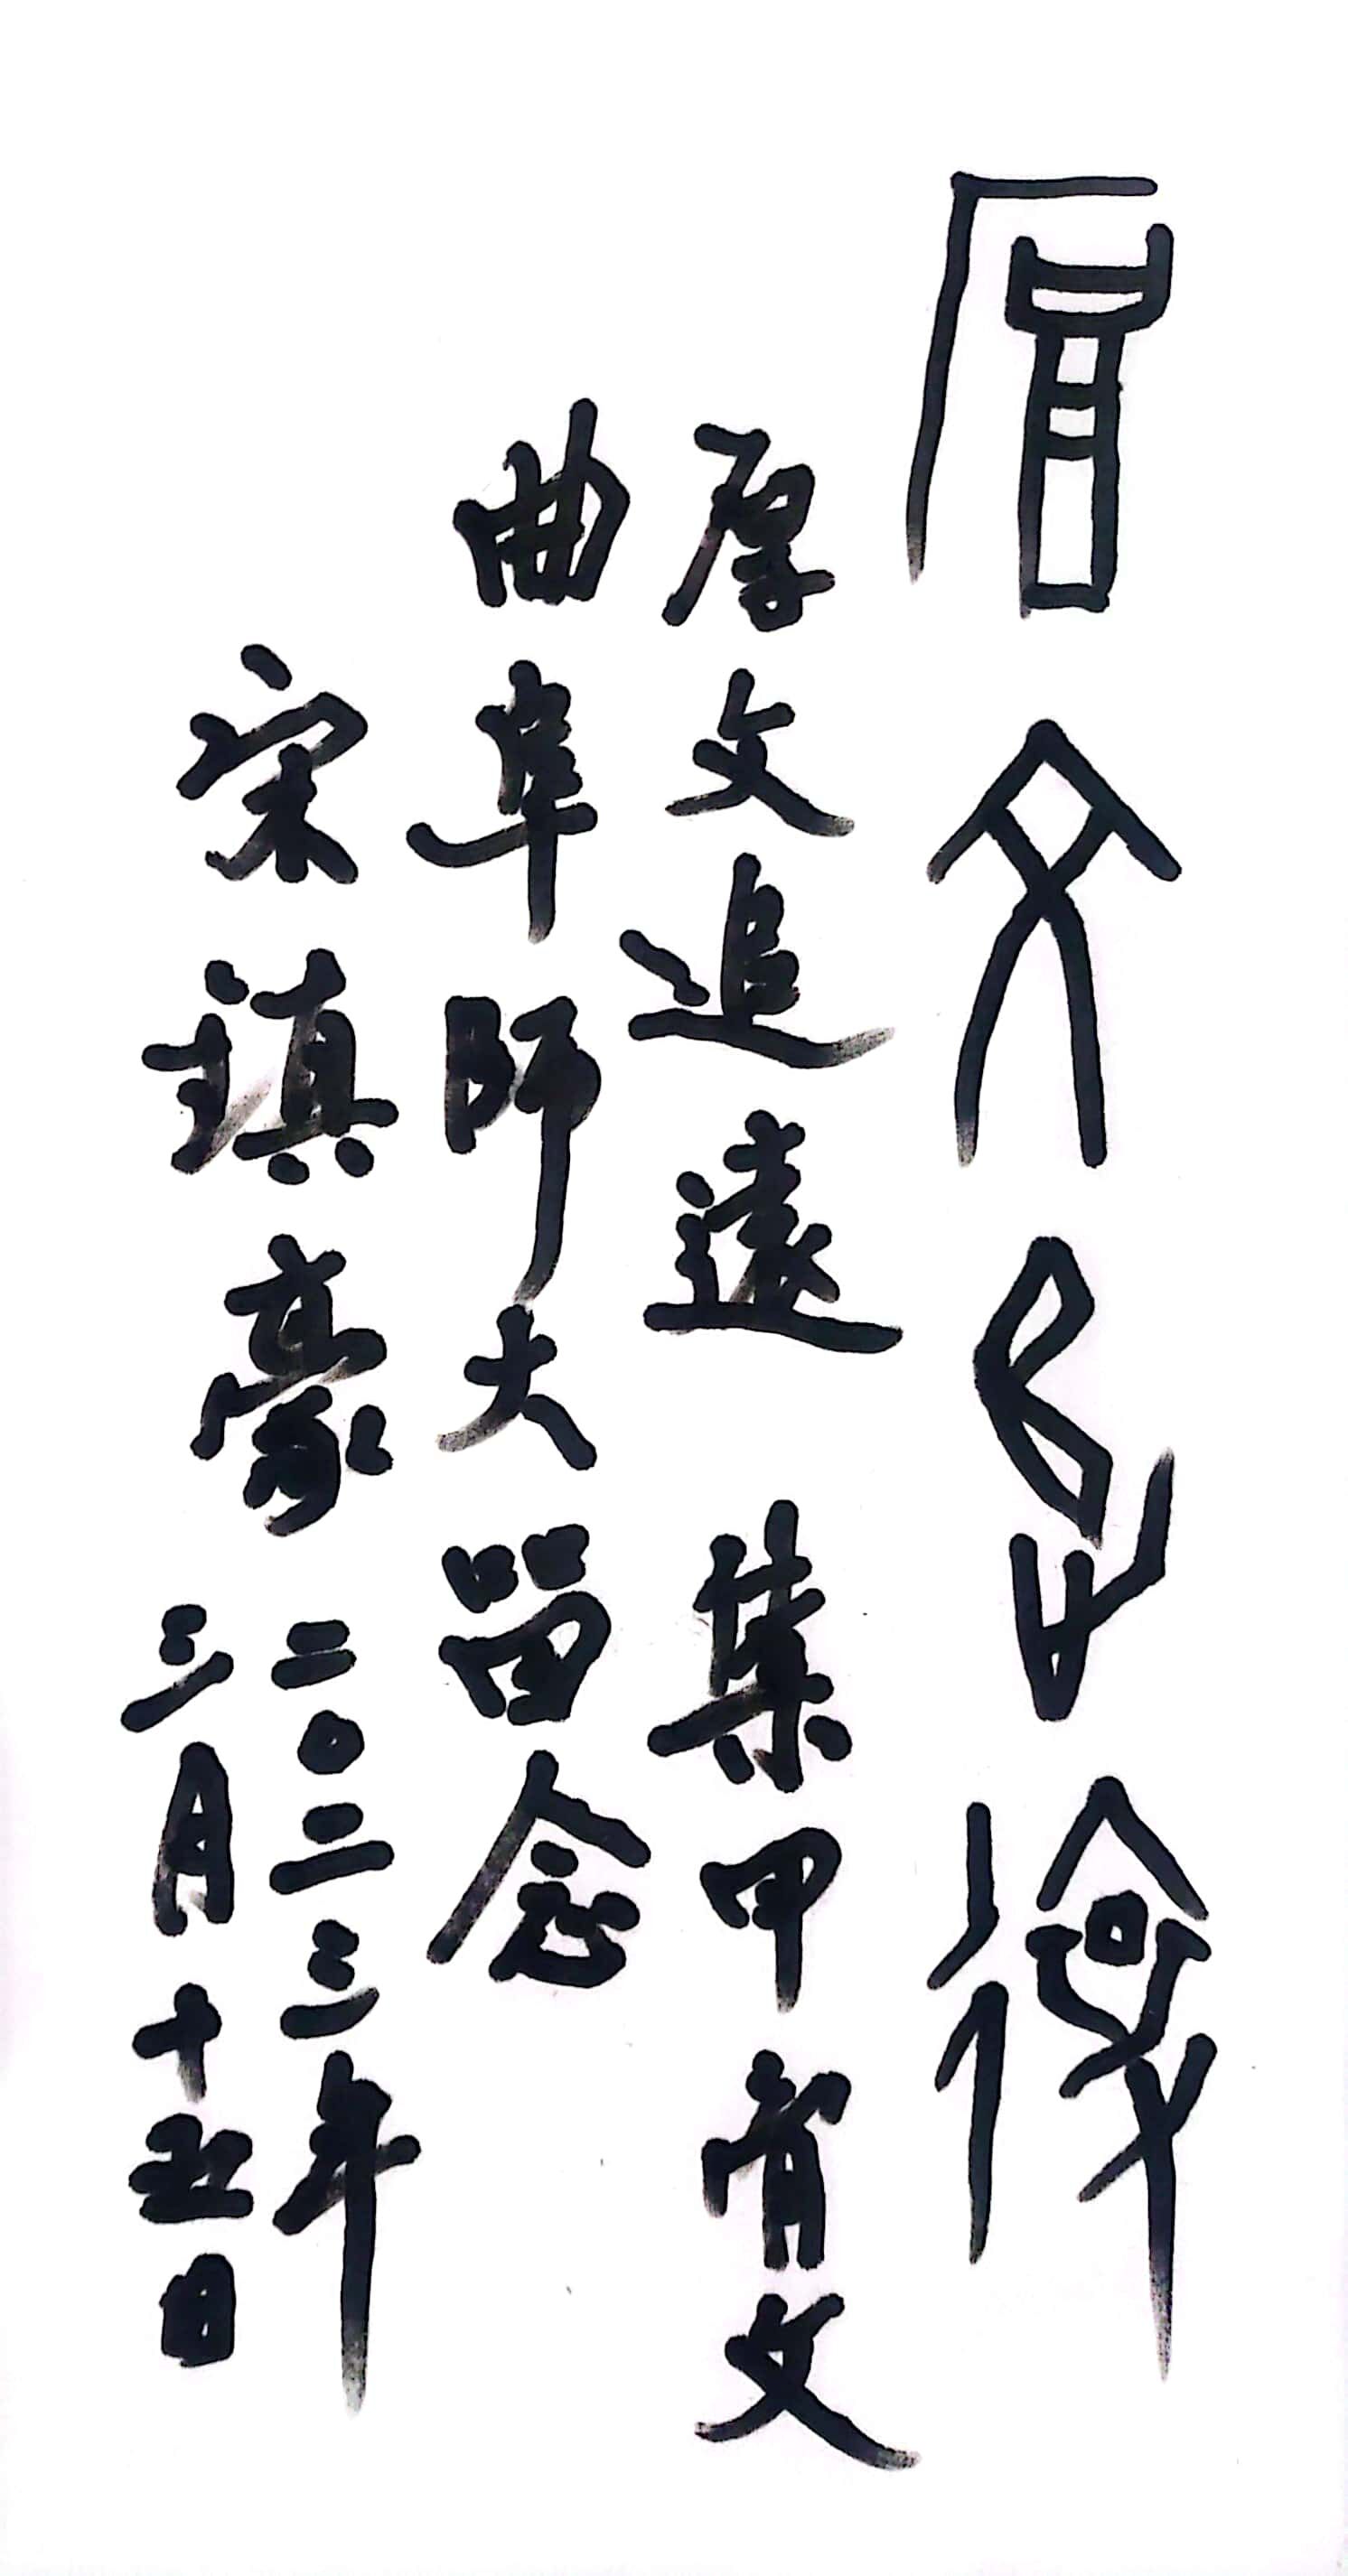 厚文追遠
厚文追遠 集甲骨文
曲阜師大留念
宋鎮豪 二〇二三年
三月十五日